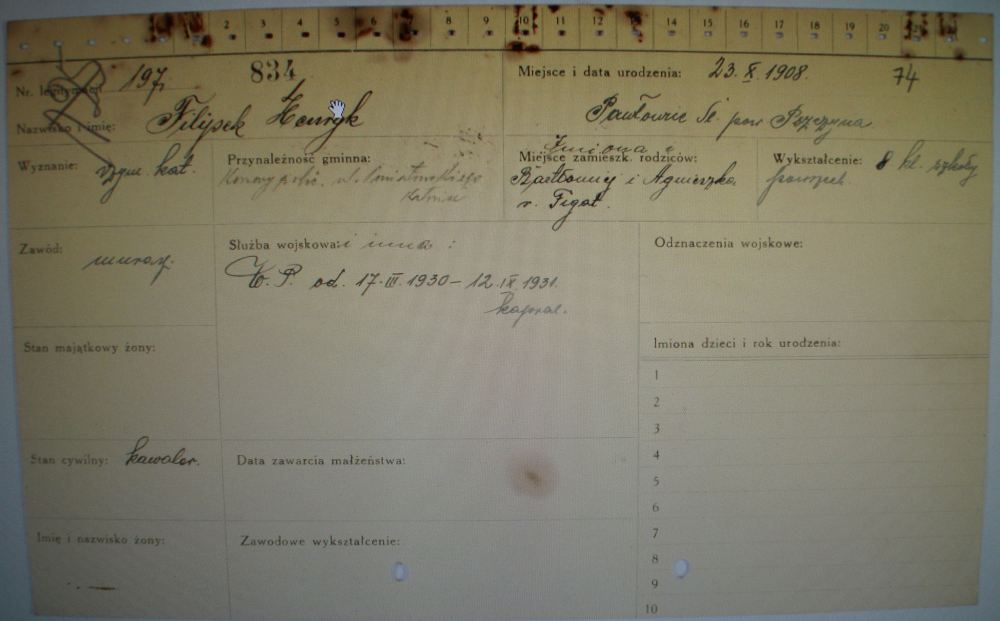 2 3 4 5 6 7 8 9 10 11 12 13 14 15 16 17 18 19 20 21
Nr. legitymacji 197, 834
Miejsce i data urodzenia: 23. X. 1908. 74
Nazwisko i imię: Filipek Henryk
Pawłowic Śl pow Pszczyna.
Wyznanie: rzym. kat.
Przynależność gminna:
ul.
Imiona i
Miejsce zamieszk. rodziców:
Bartłomiej i Agnieszka
r. Figol.
Wykształcenie: 8 kl. szkoły
powszech.
Zawód:
Służba wojskowa: i inna:
W. P. od. 17. III. 1930 – 12. IX 1931.
kapral.
Odznaczenia wojskowe:
Stan majątkowy żony:
Imiona dzieci i rok urodzenia:
1
2
3
4
5
6
7
8
9
10
Stan cywilny: kawaler.
Data zawarcia małżeństwa:
Imię i nazwisko żony:
Zawodowe wykształcenie: